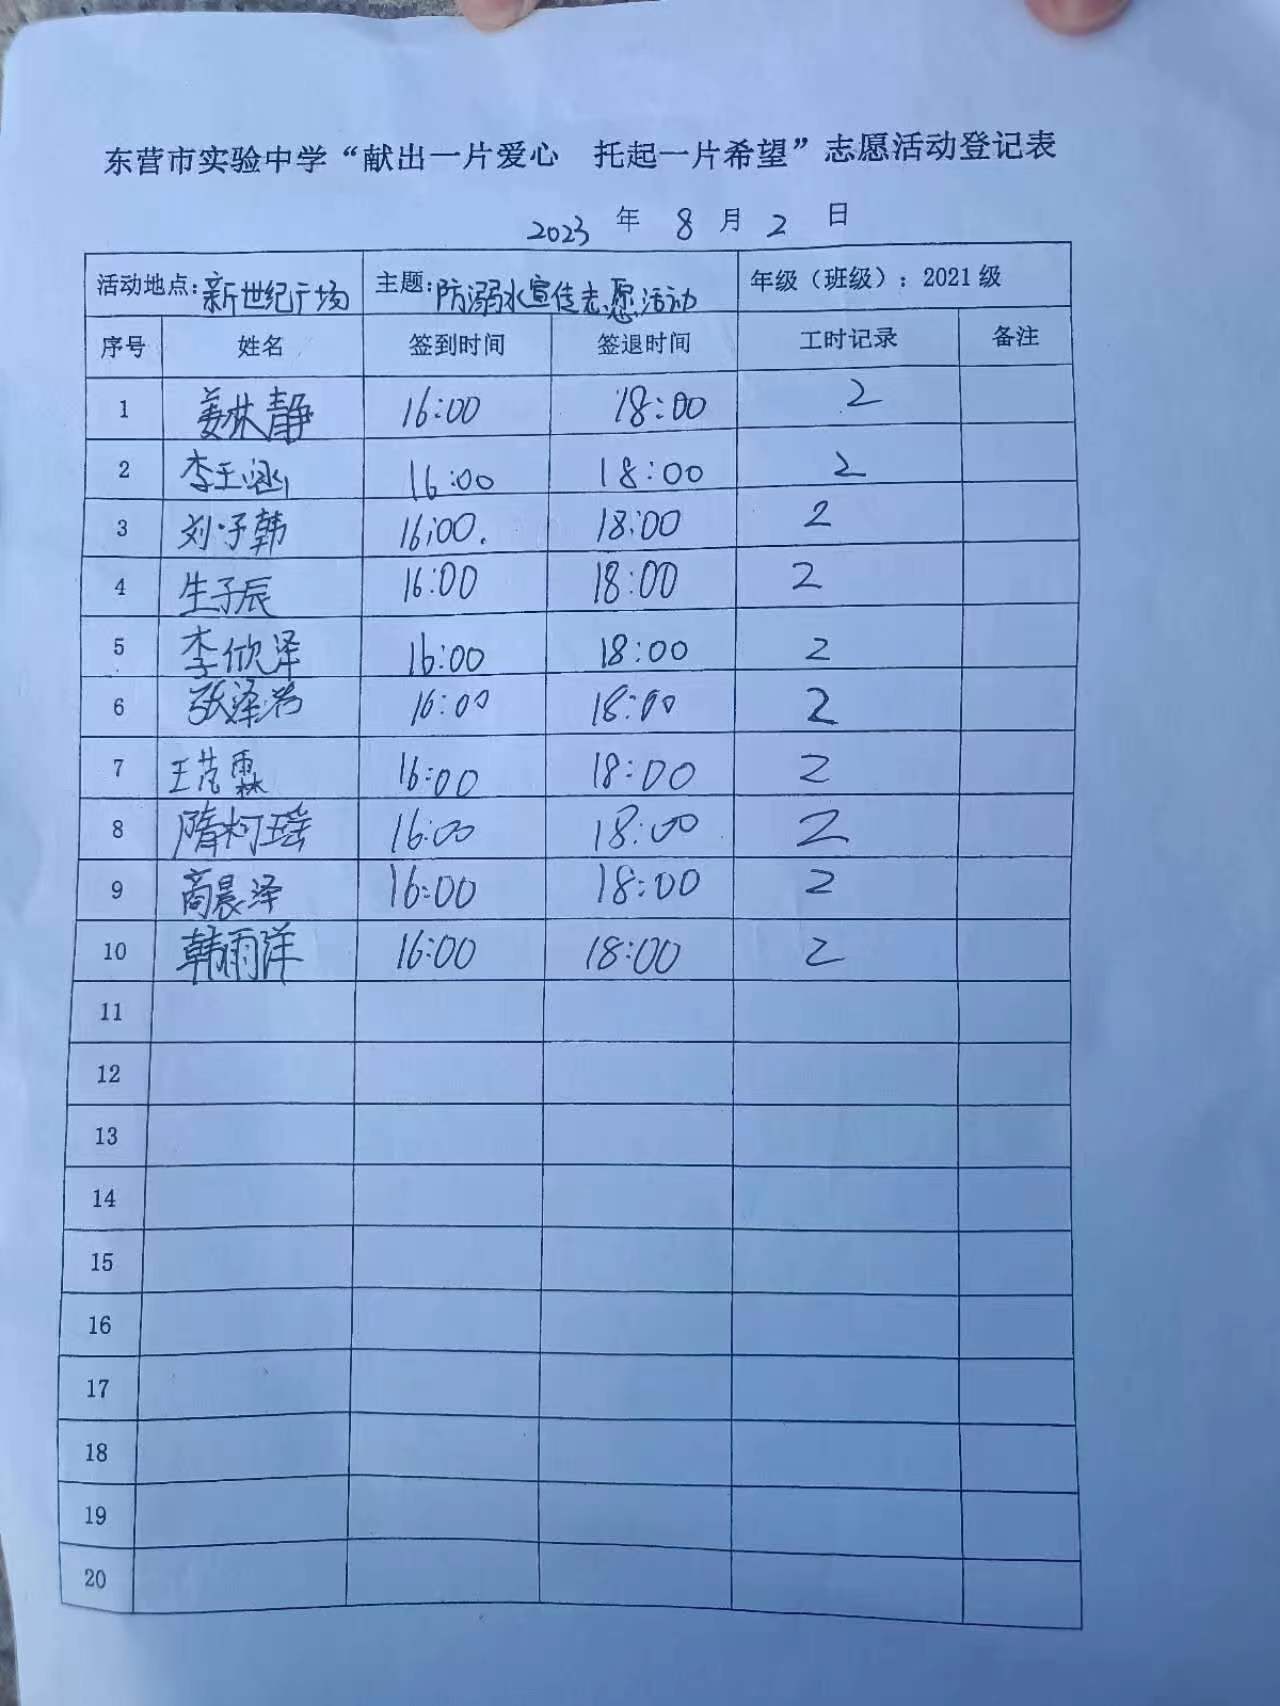 东营市实验中学“献出一片爱心 托起一片希望”志愿活动登记表
2023 年 8 月 2 日
活动地点：新世纪广场 主题：防溺水宣传志愿活动 年级（班级）：2021级
序号 姓名 签到时间 签退时间 工时记录 备注
1 姜林静 16:00 18:00 2
2 李玉涵 16:00 18:00 2
3 刘子韩 16:00. 18:00 2
4 生子辰 16:00 18:00 2
5 李欣泽 16:00 18:00 2
6 张泽 16:00 18:00 2
7 王 霖 16:00 18:00 2
8 隋柯瑶 16:00 18:00 2
9 商晨泽 16:00 18:00 2
10 韩雨洋 16:00 18:00 2
11
12
13
14
15
16
17
18
19
20